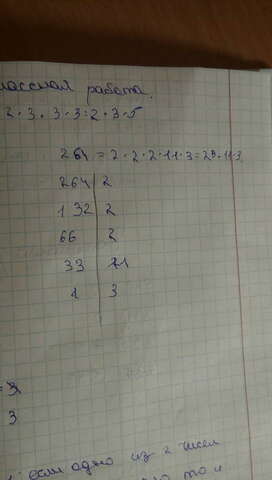 лассная работа.
2·3·3·3:2·3·5
264=2·2·2·11·3=2³·11·3
264|2
132|2
66|2
33|11
1|3
=3
3
если одно из 2 чисел
то и